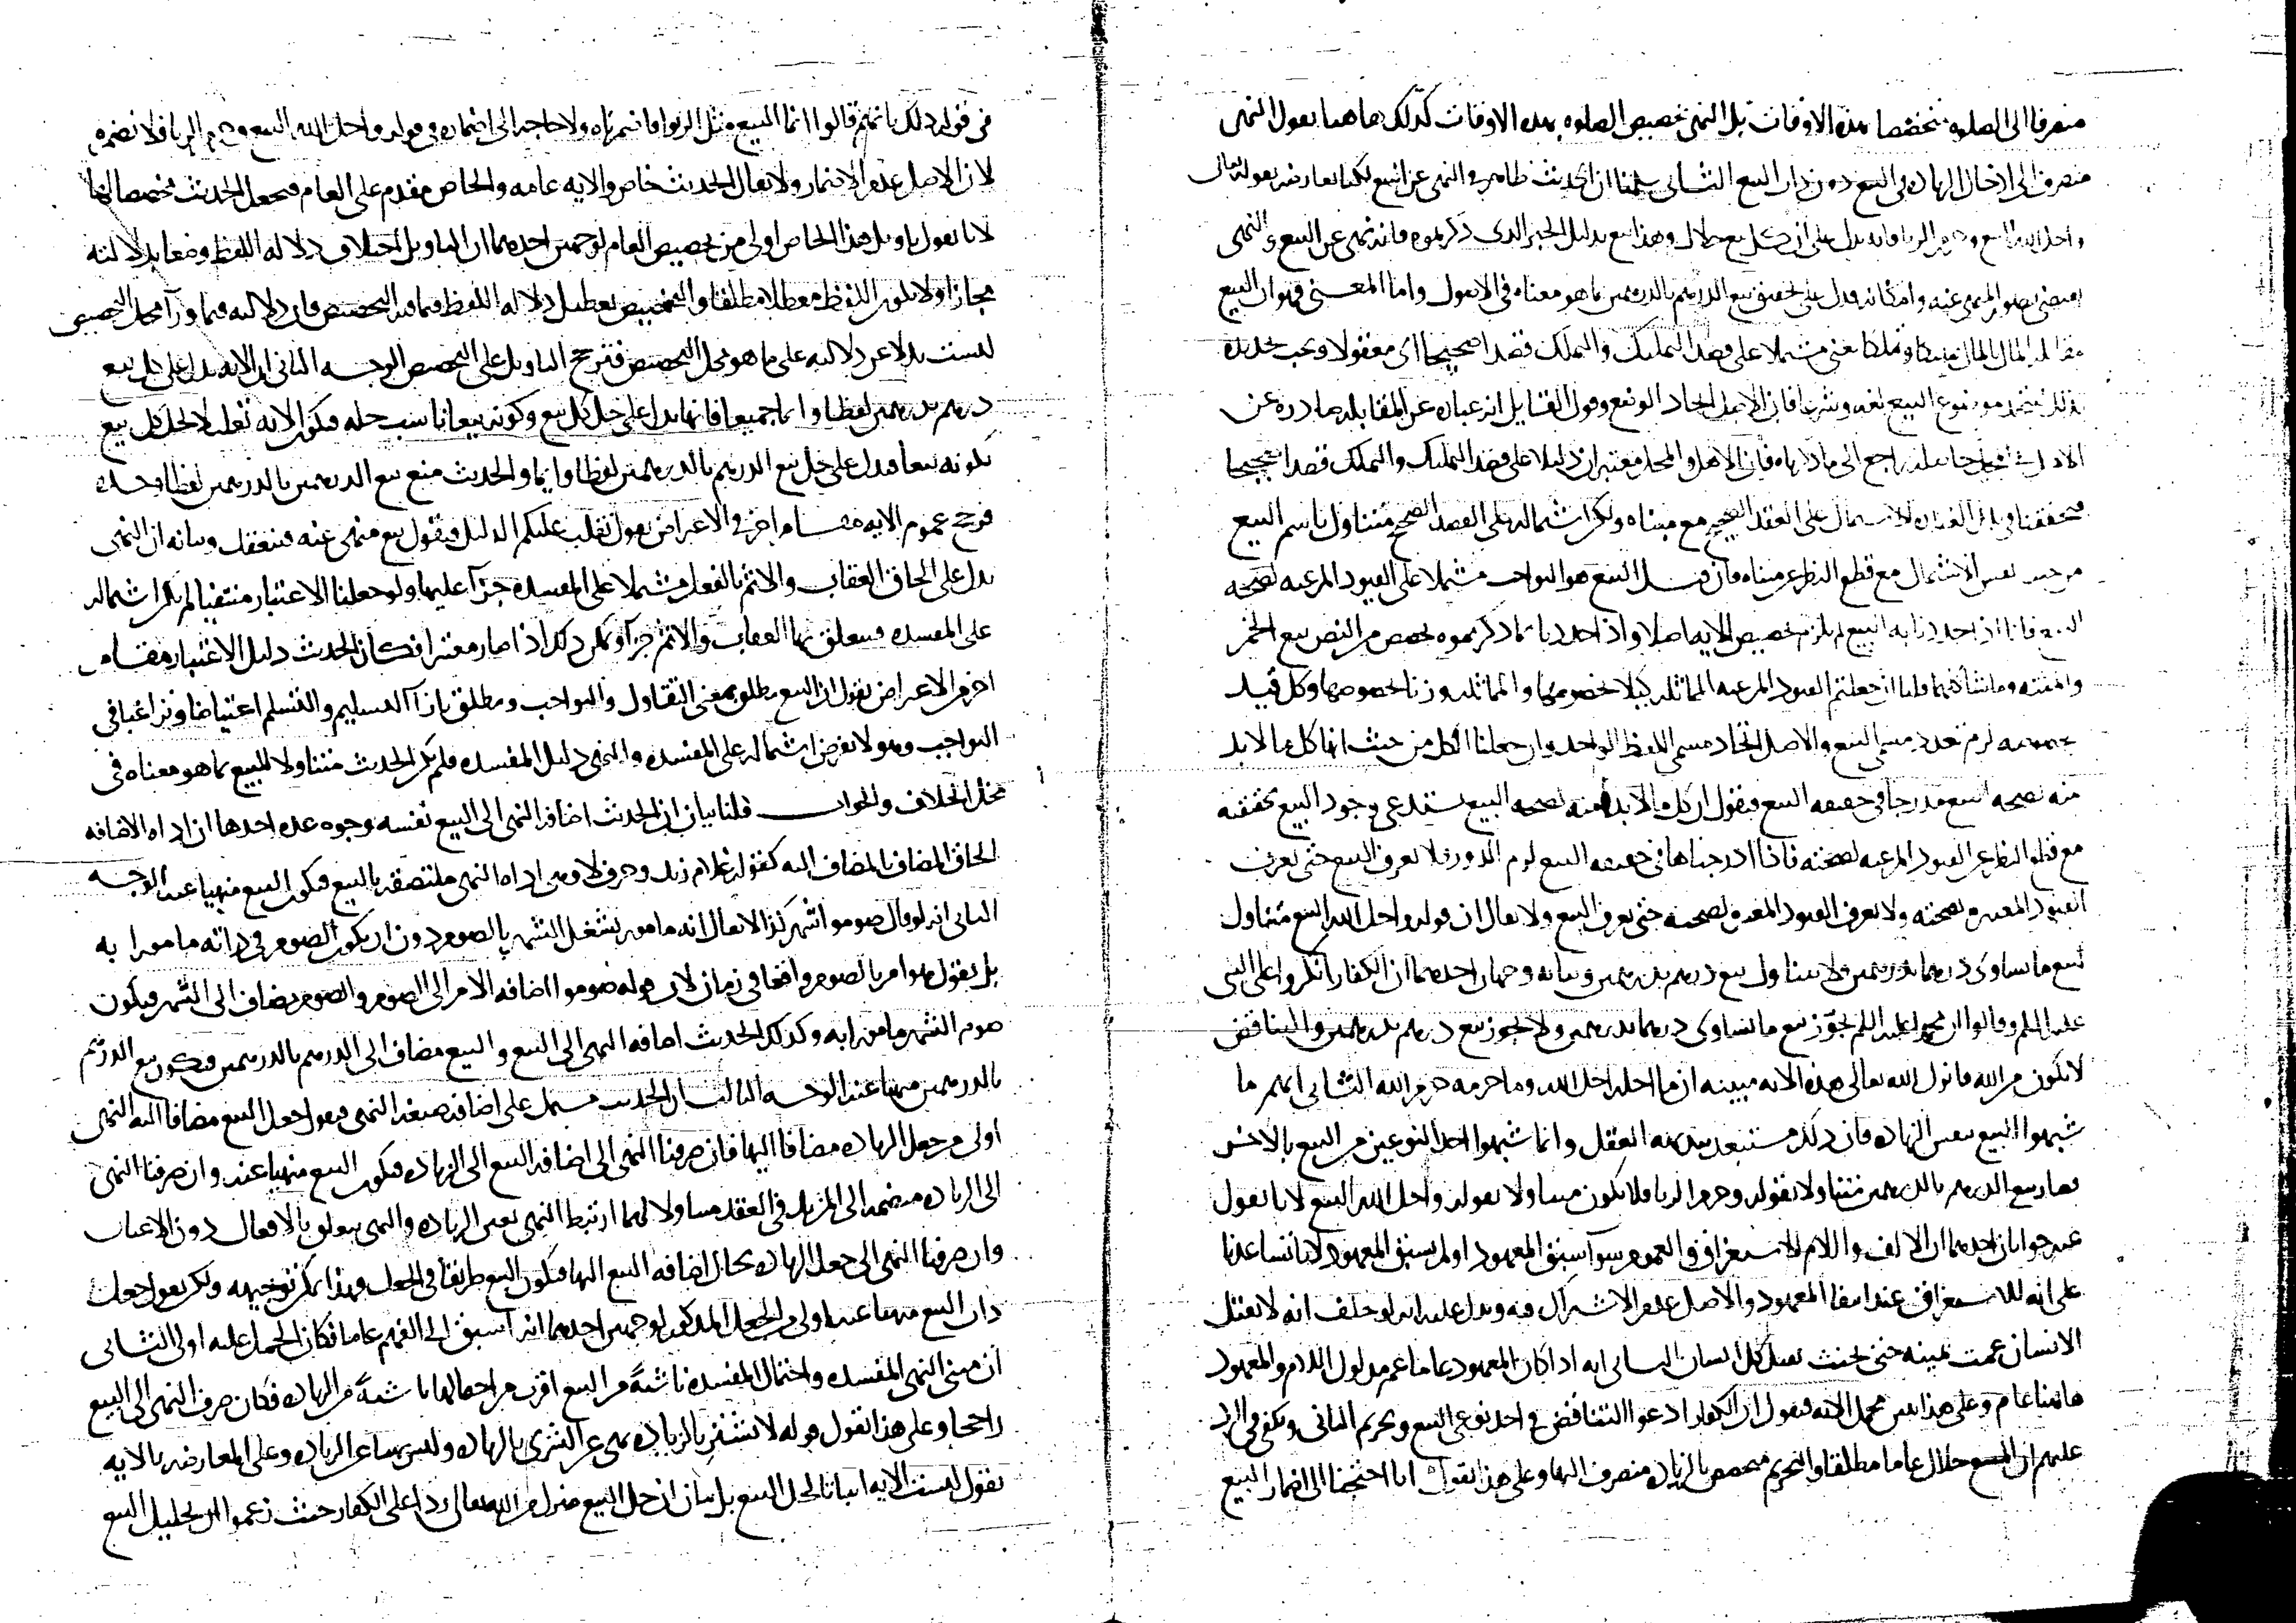 منصرفا الى الصلوه بتخصصها بهذه الاوقات بل النهى تخصيص الصلوه بهذه الاوقات كذلك هاهنا يقول النهى
منصرف الى ادخال الزياده فى البيع دون ذات البيع الثانى سلمنا ان الحديث ظاهر فى النهى عن البيع لكنا نعارضه بقوله تعالى
واحل الله البيع وحرم الربا فانه يدل على ان كل بيع حلال وهذا بيع بدليل الخبر الذى ذكرتموه فانه نهى عن البيع والنهى
يقتضى تصور المنهى عنه وامكانه فدل على تحقيق بيع الدرهم بالدرهمين بما هو معناه فى الاصول واما المعنى فهو ان البيع
مقابله المال بالمال تمليكا وتملكا يعنى مشتملا على قصد التمليك والتملك قصدا صحيحا اى معقولا ويجب تحديده
بذلك موضوع البيع لغه وشرعا فان الاصل اتحاد الوضع وقول القايل انه عباره عن المقابله صادره عن
الاهل فى المحل راجع الى ما ذكرناه فان الاهل والمحل معتبران دليلا على قصد التمليك والتملك قصدا صحيحا
فتحققنا الاشتمال على العقد الصحيح مع مبناه ولكن اشتماله على القصد الصحيح متناول باسم البيع
من حيث نفس الاشتمال مع قطع النظر عن مبناه فان قيل البيع هو التواجب مشتملا على القيود المرعيه لصحه
البيع فانا اذا حددنا به البيع لم يلزم تخصيص الايه اصلا واذا حددنا بما ذكرتموه تخصص من النص بيع الخمر
والميته وما شاكلهما قلنا ان جعلتم القيود المرعيه المماثله كيلا بخصوصها والمماثله وزنا بخصوصها وكل قيد
بخصوصه لزم تعدد مسمى البيع والاصل اتحاد مسمى اللفظ الواحد وان جعلنا الكل من حيث انها كل ما لا بد
منه لصحه البيع مدرجا فى حقيقه البيع فيقول ان كل ما لا بد منه لصحه البيع يستدعى وجود البيع بحقيقته
مع قطع النظر عن القيود المرعيه لصحته فاذا ادرجناها فى حقيقه البيع لزم الدور فلا يعرف البيع حتى يعرف
القيود المعتبره لصحته ولا يعرف القيود المعتبره لصحته حتى يعرف البيع ولا يقال ان قوله واحل الله البيع متناول
لبيع ما يساوى درهما بدرهمين ولا يتناول بيع درهم بدرهمين وبيانه وجهان احدهما ان الكفار انكروا على النبى
عليه السلم وقالوا ان محمدا عليه السلم يجوز بيع ما يساوى درهما بدرهمين ولا يجوز بيع درهم بدرهمين والتناقض
لا يكون من الله فانزل الله تعالى هذه الايه مبينه ان ما احله احل الله وما حرمه حرم الله الثانى انهم ما
شبهوا البيع بنفس الزياده فان ذلك مستبعد ببديهه العقل وانما شبهوا احد النوعين من البيع بالاخر
فصار بيع الدرهم بالدرهمين متناولا بقوله وحرم الربا فلا يكون متناولا بقوله واحل الله البيع لانا نقول
عنه جوابان احدهما ان الالف واللام للاستغراق والعموم سوآ سبق المعهود او لم يسبق المعهود لانا تساعدنا
على انه للاستغراق عند انتفا المعهود والاصل عدم الاشتراك فيه ويدل عليه انه لو حلف انه لا يقتل
الانسان عمت يمينه حتى يحنث بقتل كل انسان الثانى انه اذا كان المعهود عاما عم مدلول اللام والمعهود
هاهنا عام وعلى هذا ليس محمل الايه فيقول ان الكفار ادعوا التناقض فى احد نوعى البيع وتحريم الثانى ويكفى فى الرد
عليهم ان البيع حلال عاما مطلقا والتحريم مخصص بالزياده منصرف اليها وعلى هذا يقول انا احتجنا الى اضمار البيع
فى قوله ذلك بانهم قالوا انما البيع مثل الربوا فاضمرناه ولا حاجه الى اضماره فى قوله واحل الله البيع وحرم الربا فلا نضمره
لان الاصل عدم الاضمار ولا يقال الحديث خاص والايه عامه والخاص مقدم على العام فيجعل الحديث مخصصا لها
لانا نقول تاويل هذا الخاص اولى من تخصيص العام لوجهين احدهما ان التاويل اختلاف دلاله اللفظ وضعا بدلالته
مجازا ولا يكون اللفظ معطلا مطلقا والتخصيص تعطيل دلاله اللفظ فيما فيه التخصيص فان دلالته فيما ورآ محل التخصيص
ليست بدلا عن دلالته على ما هو محل التخصيص فترجح التاويل على التخصيص الوجه الثانى ان الايه تدل على حل بيع
درهم بدرهمين لفظا وايما جميعا فانها تدل على حل كل بيع وكونه بيعا يناسب حله فيكون الايه تعليلا لحل كل بيع
بكونه بيعا فدل على حل بيع الدرهم بالدرهمين لفظا وايما والحديث منع بيع الدرهمين بالدرهمين لفظا وحده
فرجح عموم الايه مقام اخر فى الاعتراض يقول نقلب عليكم الدليل فيقول بيع منهى عنه فينعقد وبيانه ان النهى
يدل على الحاق العقاب والاثم بالفعل مشتملا على المفسده جزآ عليها ولو جعلنا الاعتبار منتفيا لم يكن اشتماله
على المفسده فيتعلق بها العقاب والاثم جزآ ويكون ذلك اذا صار معتبرا فكان الحديث دليل الاعتبار مقام
اخر من الاعتراض يقول ان البيع مطلق بمعنى التقاول والتواجب ومطلق بازآ التسليم والتسلم اعتياضا وتراغبا فى
التواجب وهو لا نفرض اشتماله على المفسده والنهى دليل المفسده فلم يكن الحديث متناولا للبيع بما هو معناه فى
محل الخلاف والجواب قلنا بيان ان الحديث اضافه النهى الى البيع نفسه وجوه عده احدها ان اداه الاضافه
الحاق المضاف بالمضاف اليه كقوله غلام زيد وحرف لا وهى اداه النهى ملتصقه بالبيع فيكون البيع منهيا عنه الوجه
الثانى انه لو قال صوموا شهر كذا لا يقال انه مامور بشغل الشهر بالصوم دون ان يكون الصوم فى ذاته مامورا به
بل يقول هو امر بالصوم واقعا فى زمان لان قوله صوموا اضافه الامر الى الصوم والصوم مضاف الى الشهر فيكون
صوم الشهر مامورا به وكذلك الحديث اضافه النهى الى البيع والبيع مضاف الى الدرهم بالدرهمين فيكون بيع الدرهم
بالدرهمين منهيا عنه الوجه الثالث ان الحديث مشتمل على اضافه صيغه النهى فيقول جعل البيع مضافا اليه النهى
اولى من جعل الزياده مضافا اليها فان صرفنا النهى الى اضافه البيع الى الزياده فيكون البيع منهيا عنه وان صرفنا النهى
الى الزياده منضمه الى المزيد فى العقد متناولا لهما ارتبط النهى بعين الزياده والنهى يتعلق بالافعال دون الاعيان
وان صرفنا النهى الى جعل الزياده بحال اضافه البيع اليها فيكون البيع طريقا فى الجعل وهذا يمكن توجيهه ولكن يقول جعل
ذات البيع منهيا عنه اولى من الجعل المذكور لوجهين احدهما انه اسبق الى الفهم عاما فكان الحمل عليه اولى الثانى
ان مبنى النهى المفسده واحتمال المفسده ناشئه من البيع اقرب من احتمالها ناشئه من الزياده فكان صرف النهى الى البيع
راجحا وعلى هذا نقول قوله لا تشتر بالزياده نهى عن الشرى بالزياده وليس نهيا عن الزياده وعلى المعارضه بالايه
نقول ليست الايه اثباتا لحل البيع بل بيان ان حل البيع منزل من الله تعالى ردا على الكفار حيث زعموا ان تحليل البيع